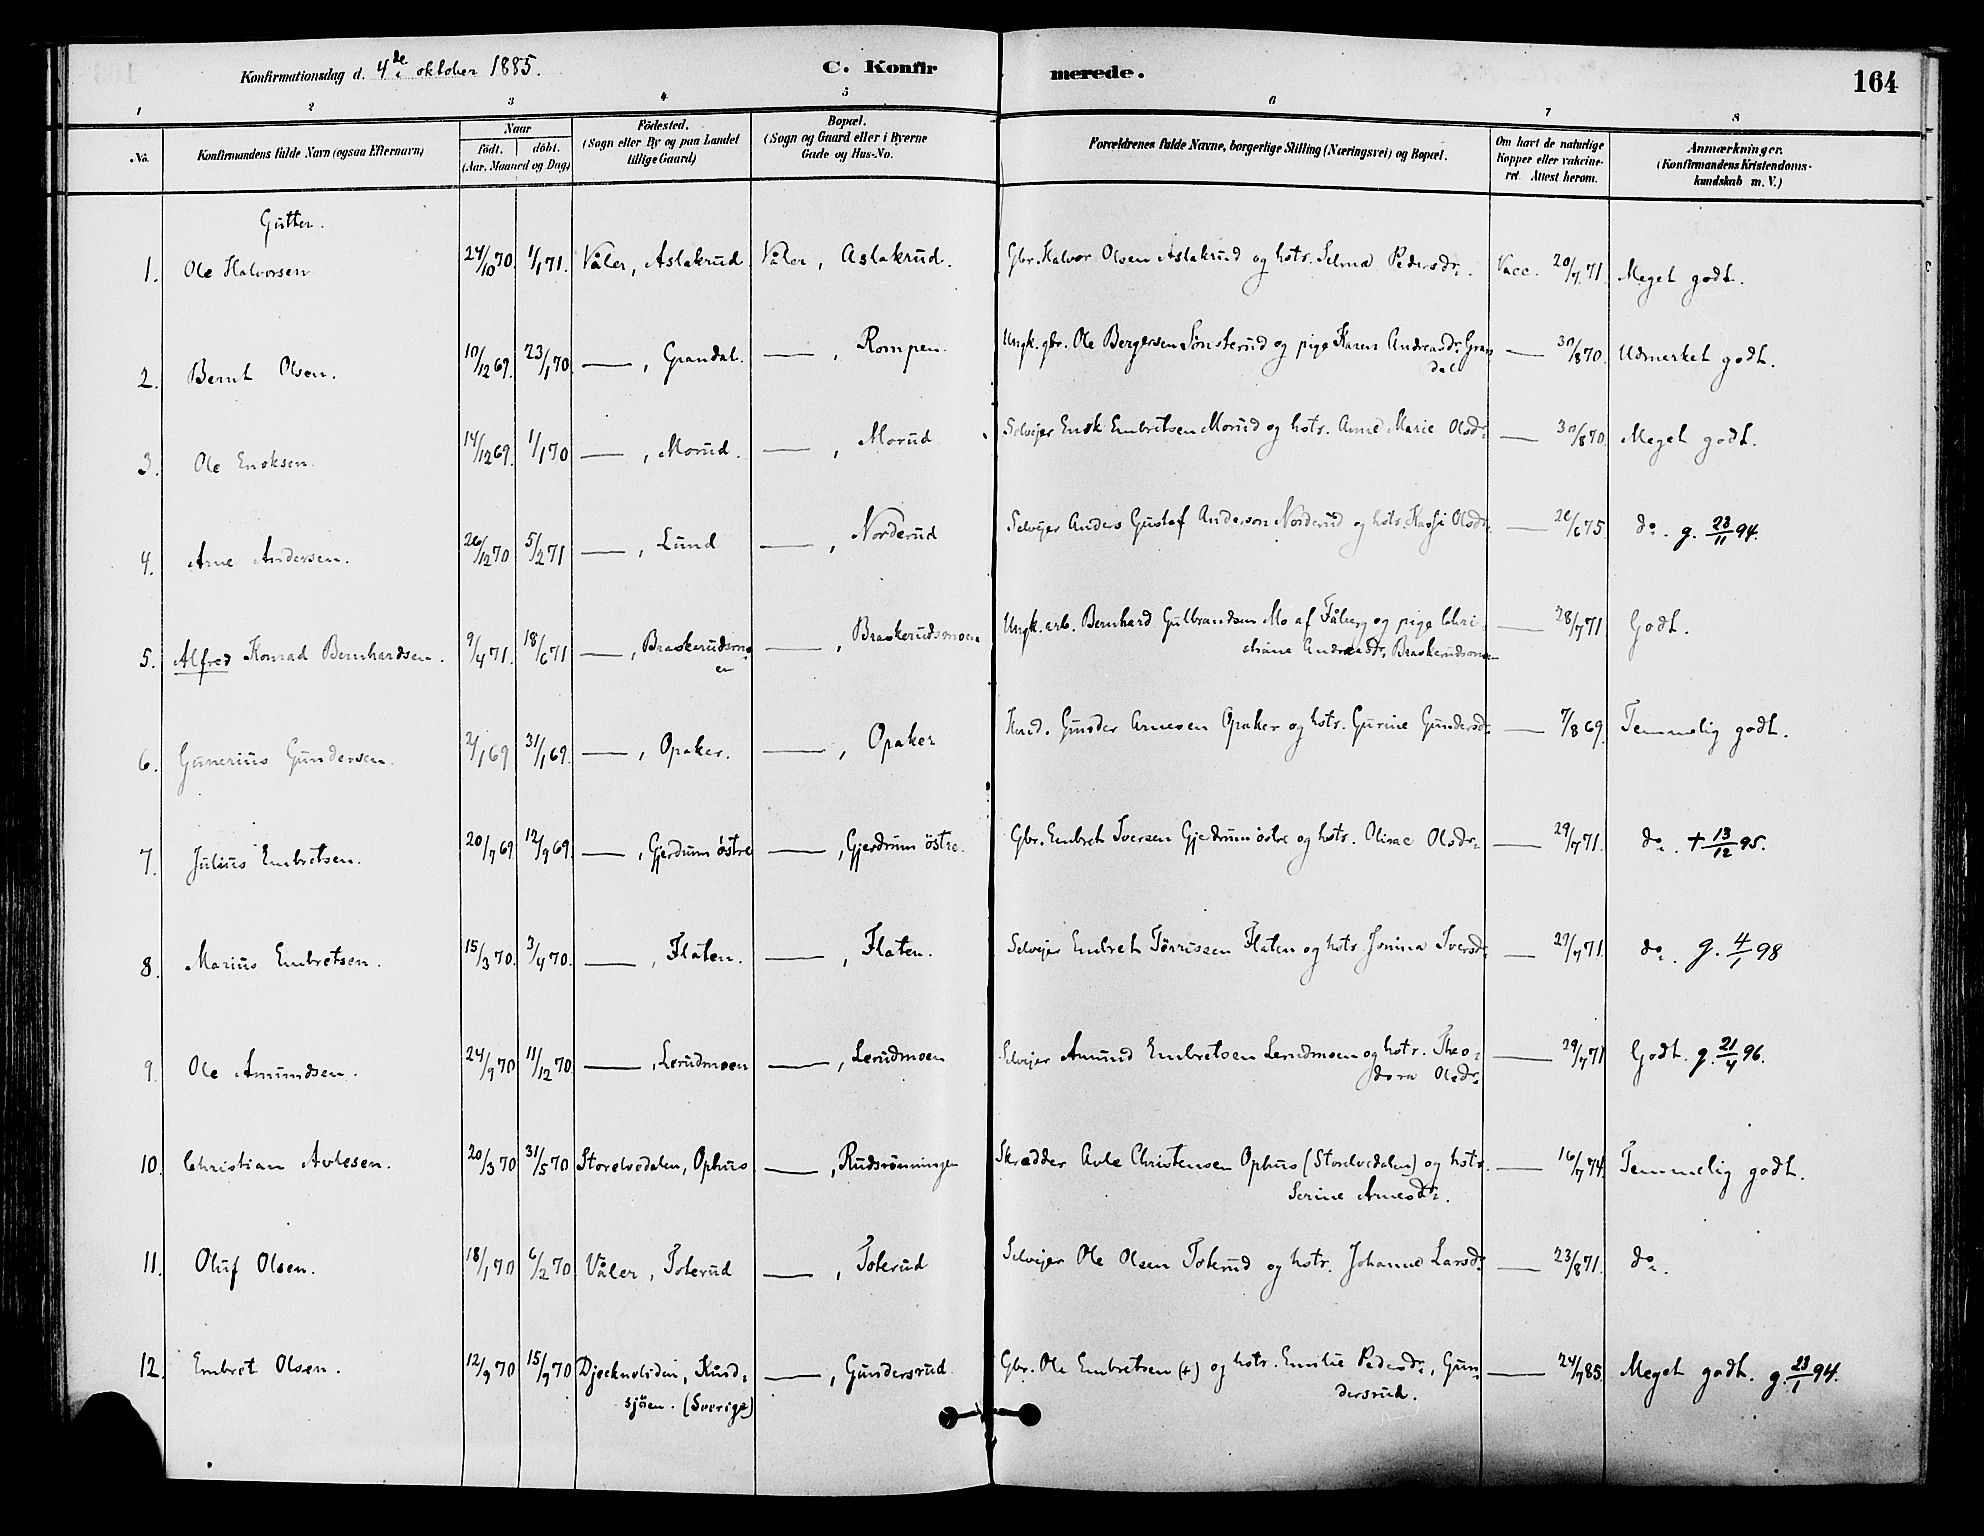 Konfirmationsdag d. 4de oktober 1885.
C. Konfirmerede.
164
1 2 3 4 5 6 7 8
No. Konfirmandens fulde Navn (ogsaa Efternavn) Naar født. døbt. (Aar. Maaned og Dag) Fødested. (Sogn eller By og paa Landet tillige Gaard) Bopæl. (Sogn og Gaard eller i Byerne Gade og Hus-No. Forældrenes fulde Navne, borgerlige Stilling (Næringsvei) og Bopæl. Om havt de naturlige Kopper eller vakcineret. Attest herom. Anmærkninger. (Konfirmandens Kristendomskundskab m. V.)
Gutter.
1. Ole Halvorsen 24/10 70. 1/1 71. Våler, Aslakrud Våler, Aslakrud. Gbr. Halvor Olsen Aslakrud og hstr. Selma Pedersdr. Vacc. 20/7 71 Meget godt.
2. Bernt Olsen. 10/12 69. 23/1 70. —, Grandal. —, Rompen. Ungk. gbr. Ole Bergersen Sønsterud og pige Karen Andreasdr. Grandal — 30/8 70. Udmerket godt.
3. Ole Enoksen. 14/12 69. 1/1 70 —, Morud. —, Morud Selvejer Enok Embretsen Morud og hstr. Anne Marie Olsdr. — 30/8 70. Meget godt.
4. Arne Andersen. 26/12 70 5/2 71 —, Lund —, Norderud Selvejer Anders Gustaf Anderson Norderud og hstr. Kaisji Olsdr. — 26/6 75. do. g. 23/11 94.
5. Alfred Konrad Bernhardsen. 9/4 71. 18/6 71 —, Braskerudsmoen —, Braskerudsmoen Ungk. arb. Bernhard Gulbrandsen Mo af Fåberg og pige Christiane Andreasdr. Braskerudsmoen — 28/7 71 Godt.
6. Gunerius Gundersen. 2/1 69 31/1 69. —, Opaker. —, Opaker Husd. Gunder Arnesen Opaker og hstr. Gurine Gundersdr. — 7/8 69. Temmelig godt.
7. Julius Embretsen. 20/7 69 12/9 69. —, Gjerdrum østre —, Gjerdrum østre. Gbr. Embret Iversen Gjerdrum østre og hstr. Olinae Olsdr. — 29/7 71. do. + 13/12 95.
8. Marius Embretsen. 15/3 70. 3/4 70. —, Flaten. —, Flaten. Selvejer Embret Tørrissen Flaten og hstr. Jonina Iversdr. — 29/7 71. do. g. 4/1 98
9. Ole Amundsen. 24/9 70 11/12 70. —, Lerudmoen —, Lerudmoen Selvejer Amund Embretsen Lerudmoen og hstr. Theodora Olsdr. — 29/7 71 Godt. g. 21/4 96.
10. Christian Avlesen. 20/3 70 31/5 70 Storelvedalen, Ophus —, Rudsrønningen Skrædder Avle Christensen Ophus (Storelvedalen) og hstr. Serine Arnesdr. — 16/7 74. Temmelig godt.
11. Oluf Olsen. 18/1 70 6/2 70 Våler, Toterud —, Toterud Selvejer Ole Olsen Toterud og hstr. Johanne Larsdr. — 23/8 71. do.
12. Embret Olsen. 12/9 70 15/9 70 Djecknoliden, Kindsjøen. (Sverige) —, Gundersrud. Gbr. Ole Embretsen (+) og hstr. Emilie Pedersdr., Gundersrud. — 24/7 85. Meget godt. g. 23/1 94.